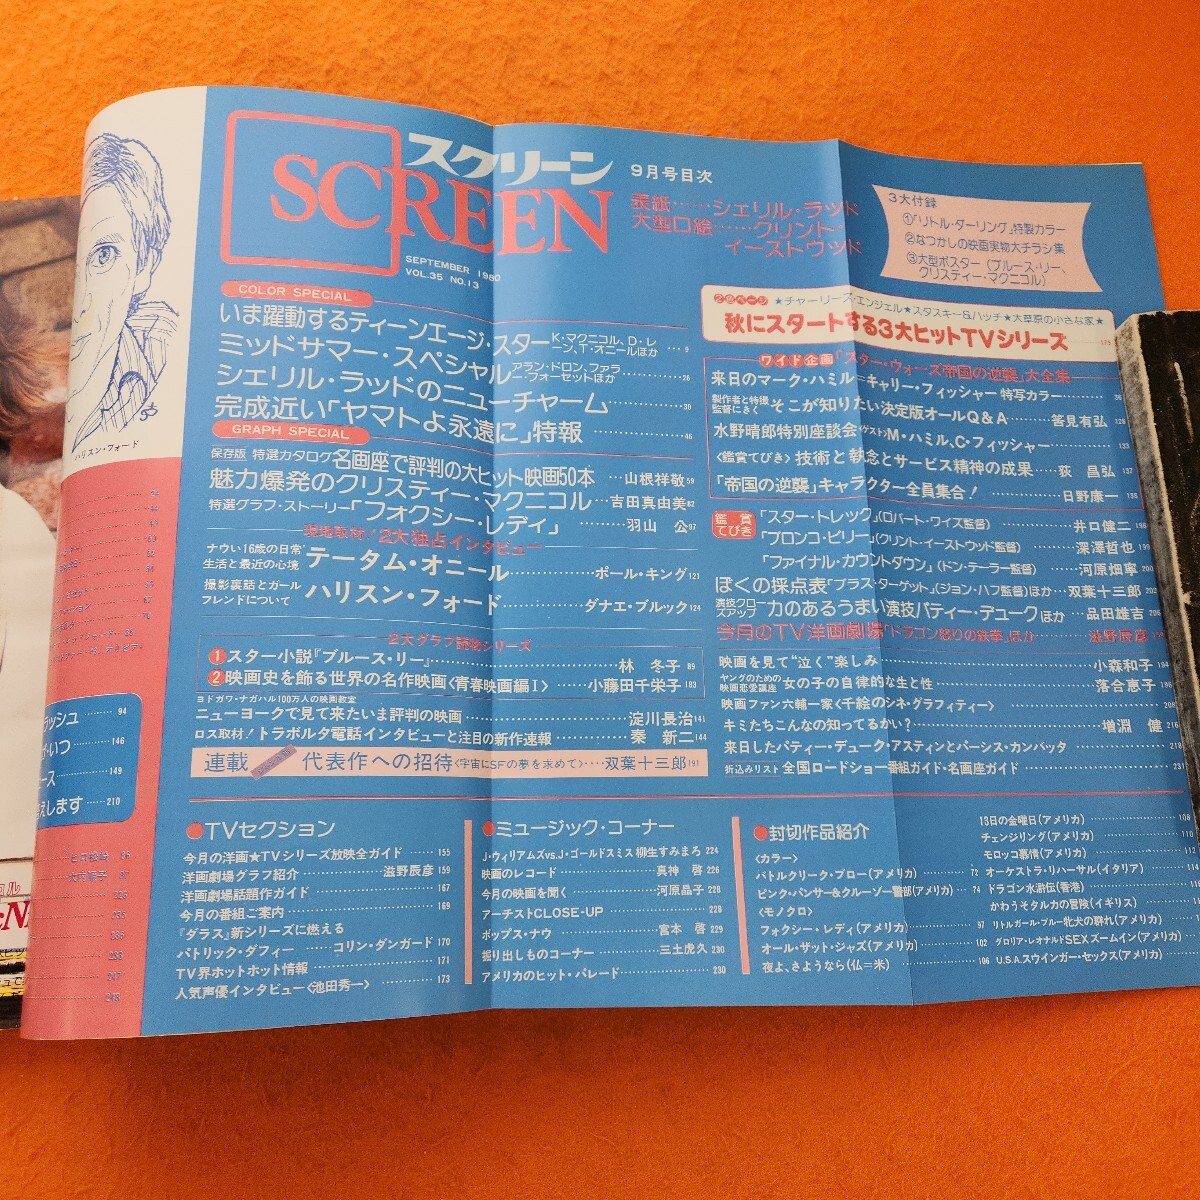 スクリーン
SCREEN
SEPTEMBER 1980
VOL.35 NO.13
9月号目次
表紙……シェリル・ラッド
大型口絵……クリント・
イーストウッド
3大付録
①「リトル・ダーリング」特製カラー
②なつかしの映画実物大チラシ集
③大型ポスター(ブルース・リー、
クリスティー・マクニコル)
COLOR SPECIAL
いま躍動するティーンエージ・スター K・マクニコル、D・レーン、T・オニールほか 9
ミッドサマー・スペシャル アラン・ドロン、ファラー・フォーセットほか 26
シェリル・ラッドのニューチャーム 30
完成近い「ヤマトよ永遠に」特報 46
GRAPH SPECIAL
保存版 特選カタログ 名画座で評判の大ヒット映画50本 山根祥敬 59
魅力爆発のクリスティー・マクニコル 吉田真由美 82
特選グラフ・ストーリー「フォクシー・レディ」 羽山 公 97
現地取材!2大独占インタビュー
ナウい16歳の日常
生活と最近の心境 テータム・オニール ポール・キング 121
撮影裏話とガール
フレンドについて ハリスン・フォード ダナエ・ブルック 124
2大グラフ読物シリーズ
1 スター小説『ブルース・リー』 林 冬子 89
2 映画史を飾る世界の名作映画〈青春映画編Ⅰ〉 小藤田千栄子 183
ヨドガワ・ナガハル100万人の映画教室
ニューヨークで見て来たいま評判の映画 淀川長治 141
ロス取材!トラボルタ電話インタビューと注目の新作速報 秦 新二 144
連載 代表作への招待〈宇宙にSFの夢を求めて〉 双葉十三郎 191
2色ページ ★チャーリーズ・エンジェル★スタスキー&ハッチ★大草原の小さな家★
秋にスタートする3大ヒットTVシリーズ 175
ワイド企画「スター・ウォーズ帝国の逆襲」大全集
来日のマーク・ハミル=キャリー・フィッシャー 特写カラー 36
製作者と特撮
監督にきく そこが知りたい決定版オールQ&A 筈見有弘 128
水野晴郎特別座談会〈ゲスト〉M・ハミル、C・フィッシャー 133
〈鑑賞てびき〉技術と執念とサービス精神の成果 荻 昌弘 137
「帝国の逆襲」キャラクター全員集合! 日野康一 138
鑑賞
てびき
「スター・トレック」(ロバート・ワイズ監督) 井口健二 198
「ブロンコ・ビリー」(クリント・イーストウッド監督) 深澤哲也 199
「ファイナル・カウントダウン」(ドン・テーラー監督) 河原畑寧 200
ぼくの採点表「ブラス・ターゲット」(ジョン・ハフ監督)ほか 双葉十三郎 202
演技クロー
ズアップ 力のあるうまい演技パティー・デュークほか 品田雄吉 206
今月のTV洋画劇場「ドラゴン怒りの鉄拳」ほか 滋野辰彦
映画を見て“泣く”楽しみ 小森和子 194
ヤングのための
映画恋愛講座 女の子の自律的な生と性 落合恵子 196
映画ファン六輔一家〈千絵のシネ・グラフィティー〉 208
キミたちこんなの知ってるかい? 増淵 健 216
来日したパティー・デューク・アスティンとパーシス・カンバッタ 218
折込みリスト 全国ロードショー番組ガイド・名画座ガイド 231
●TVセクション
今月の洋画★TVシリーズ放映全ガイド 155
洋画劇場グラフ紹介 滋野辰彦 159
洋画劇場話題作ガイド 167
今月の番組ご案内 169
『ダラス』新シリーズに燃える
パトリック・ダフィー コリン・ダンガード 170
TV界ホットホット情報 171
人気声優インタビュー〈池田秀一〉 173
●ミュージック・コーナー
J・ウィリアムズvs.J・ゴールドスミス 柳生すみまろ 224
映画のレコード 真神 啓 226
今月の映画を聞く 河原晶子 228
アーチストCLOSE-UP 228
ポップス・ナウ 宮本 啓 229
掘り出しものコーナー 三土虎久 230
アメリカのヒット・パレード 230
●封切作品紹介
〈カラー〉
バトルクリーク・ブロー(アメリカ) 72
ピンク・パンサー&クルーゾー警部(アメリカ) 74
〈モノクロ〉
フォクシー・レディ(アメリカ) 97
オール・ザット・ジャズ(アメリカ) 102
夜よ、さようなら(仏=米) 106
13日の金曜日(アメリカ) 108
チェンジリング(アメリカ)
モロッコ慕情(アメリカ) 112
オーケストラ・リハーサル(イタリア)
ドラゴン水滸伝(香港)
かわうそタルカの冒険(イギリス)
リトルガール・ブルー牝犬の群れ(アメリカ)
グロリア・レオナルドSEXズームイン(アメリカ)
U.S.A.スウインガー・セックス(アメリカ)
ハリスン・フォード
ラッシュ 94
いつ 146
ース 149
えします 210